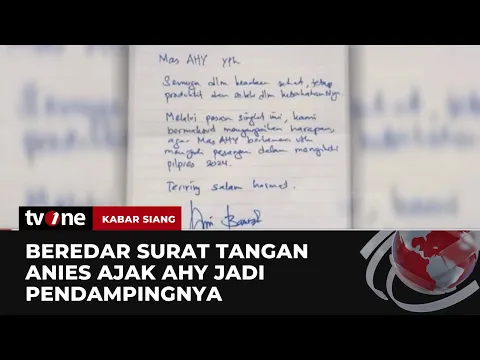 Mas AHY yth
Semoga dlm keadaan sehat, tetap
produktif dan selalu dlm
Melalui pesan singkat ini, kami
bermaksud menyampaikan harapan,
agar Mas AHY berkenan utk
menjadi pasangan dalam mengikuti
pilpres 2024.
Teriring salam hormat.
tvOne
KABAR SIANG
BEREDAR SURAT TANGAN
ANIES AJAK AHY JADI
PENDAMPINGNYA